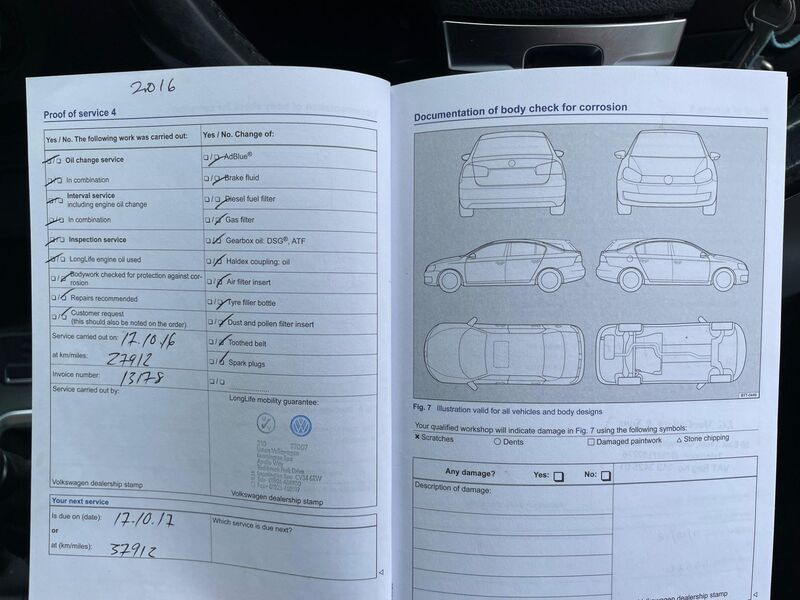 2016
Proof of service 4
Yes / No. The following work was carried out:
Oil change service
In combination
Interval service
including engine oil change
In combination
Inspection service
LongLife engine oil used
Bodywork checked for protection against cor-
rosion
Repairs recommended
Customer request
(this should also be noted on the order)
Service carried out on: 17.10.16
at km/miles: 27912
Invoice number: 13178
Service carried out by:
Volkswagen dealership stamp
Yes / No. Change of:
AdBlue®
Brake fluid
Diesel fuel filter
Gas filter
Gearbox oil: DSG®, ATF
Haldex coupling: oil
Air filter insert
Tyre filler bottle
Dust and pollen filter insert
Toothed belt
Spark plugs
LongLife mobility guarantee:
Volkswagen dealership stamp
Your next service
Is due on (date): 17.10.17
or
at (km/miles): 37912
Which service is due next?
Documentation of body check for corrosion
Fig. 7 Illustration valid for all vehicles and body designs
Your qualified workshop will indicate damage in Fig. 7 using the following symbols:
× Scratches ○ Dents □ Damaged paintwork △ Stone chipping
Any damage? Yes: No:
Description of damage:
Volkswagen dealership stamp